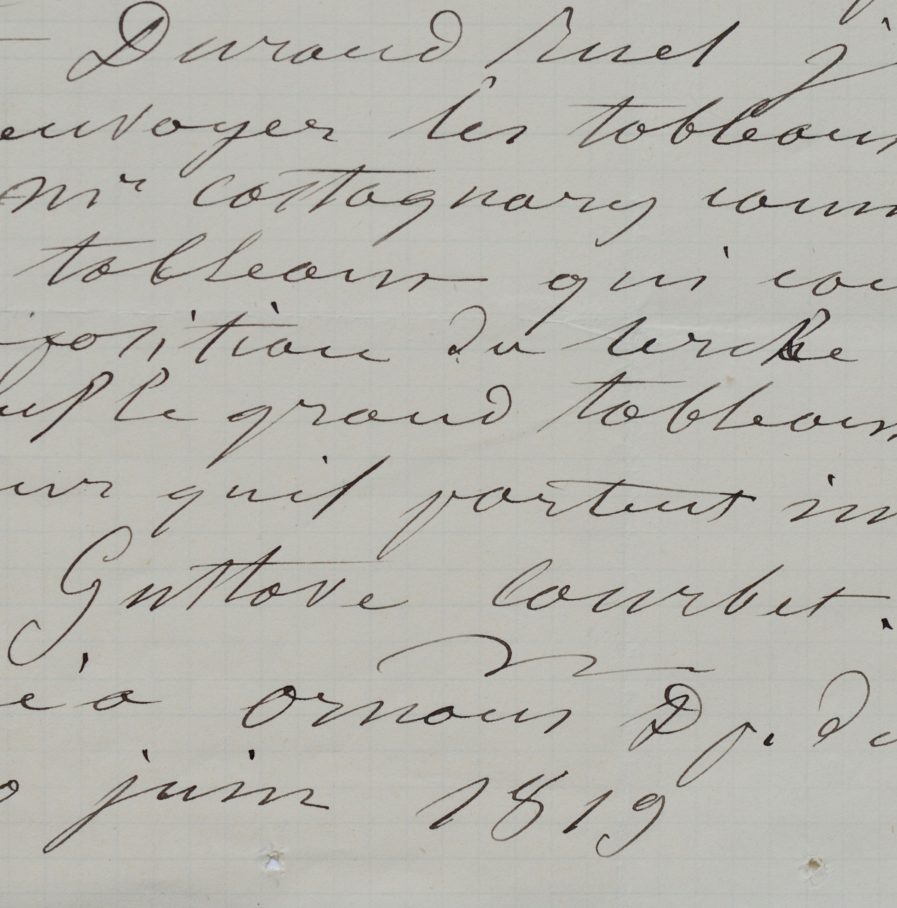 Durand Ruel j'
envoyer les tableaux
Mr Castagnary comm
tableaux qui com
position du cercle
uf le grand tableau
eur qu'il portent in
Gustave Courbet.
é à Ornans Dp. du
juin 1819